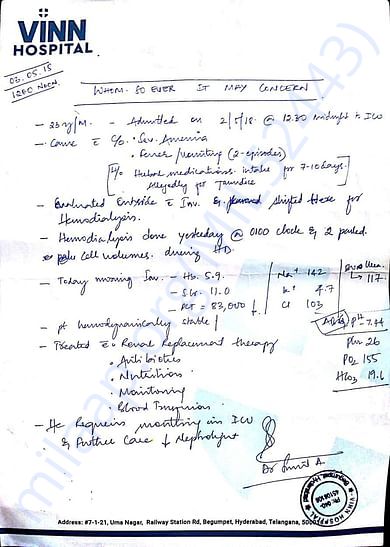 VINN
HOSPITAL
03.05.18
1200 NOON
WHOM SO EVER IT MAY CONCERN
- 25 y/M. - Admitted on 2/5/18 @ 12.30 midnight in ICU
- Came c c/o. Sev. Anemia
• Fever / vomiting (2-episodes)
H/o Herbal medications intake for 7-10 days.
Allegedly for Jaundice
- Evaluated Outside c Inv. & shifted here for
Hemodialysis.
- Hemodialysis done yesterday @ 0100 clock & 2 packed
cell volumes. during HD.
- Today morning Inv. - Hb. 5.9. Na+ 142 Urea
- Scr. 11.0 K+ 4.7 117
- PLT = 83,000 ↓ Cl 103
- pt hemodynamically stable ABG pH - 7.44
- Treated c • Renal Replacement therapy 26
• Antibiotics PO2 155
• Nutrition HCO3 19.6
• Monitoring
• Blood Transfusion
- He Requires monitoring in ICU
& further Care ↓ Nephrologist
Dr Sunil A.
VINN HOSPITAL
Begumpet, Hyderabad
Address: #7-1-21, Uma Nagar, Railway Station Rd, Begumpet, Hyderabad, Telangana,